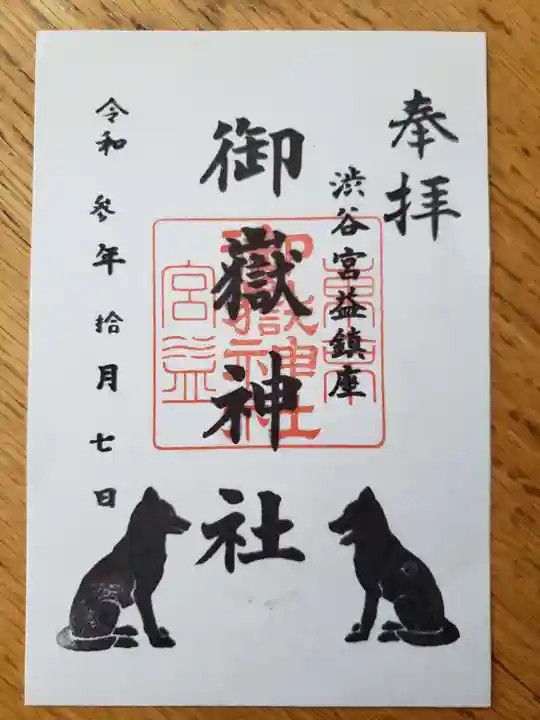 奉拝
渋谷宮益鎮座
御嶽神社
令和 参年 拾月 七日
東京
御嶽神社
宮益